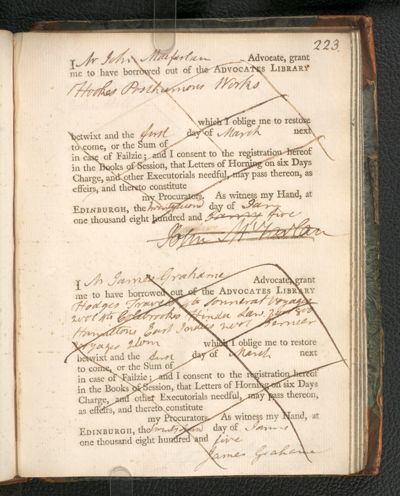 223
I Mr John Macfarlan Advocate, grant
me to have borrowed out of the ADVOCATES LIBRARY
Hookes Posthumous Works
which I oblige me to restore
betwixt and the first day of March next
to come, or the Sum of
in case of Failzie; and I consent to the registration hereof
in the Books of Session, that Letters of Horning on six Days
Charge, and other Executorials needful, may pass thereon, as
effeirs, and thereto constitute
my Procurators. As witness my Hand, at
EDINBURGH, the day of Jan
one thousand eight hundred and five
John McFarlan
I Mr James Grahame Advocate, grant
me to have borrowed out of the ADVOCATES LIBRARY
Hodges Travels Sonnerat Voyages
2 vol Colebrookes Hindu Law
Hamiltons East Indies 2 vol Bernier
Voyages 2 tom which I oblige me to restore
betwixt and the first day of March next
to come, or the Sum of
in case of Failzie; and I consent to the registration hereof
in the Books of Session, that Letters of Horning on six Days
Charge, and other Executorials needful, may pass thereon,
as effeirs, and thereto constitute
my Procurators. As witness my Hand, at
EDINBURGH, the day of Jany
one thousand eight hundred and five
James Grahame